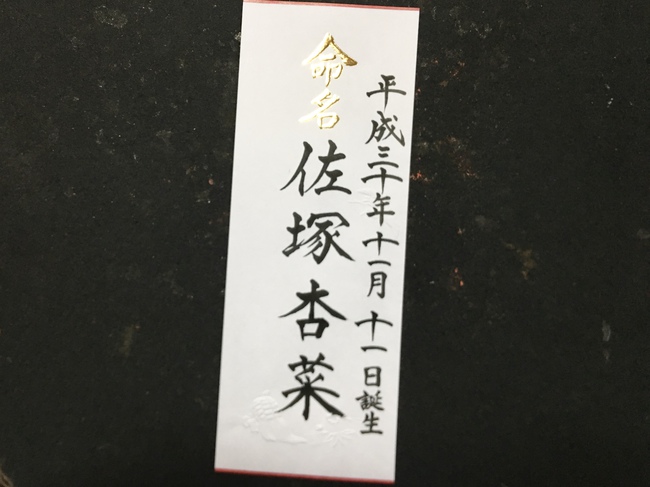 平成三十年十一月十一日誕生
命名
佐塚杏菜